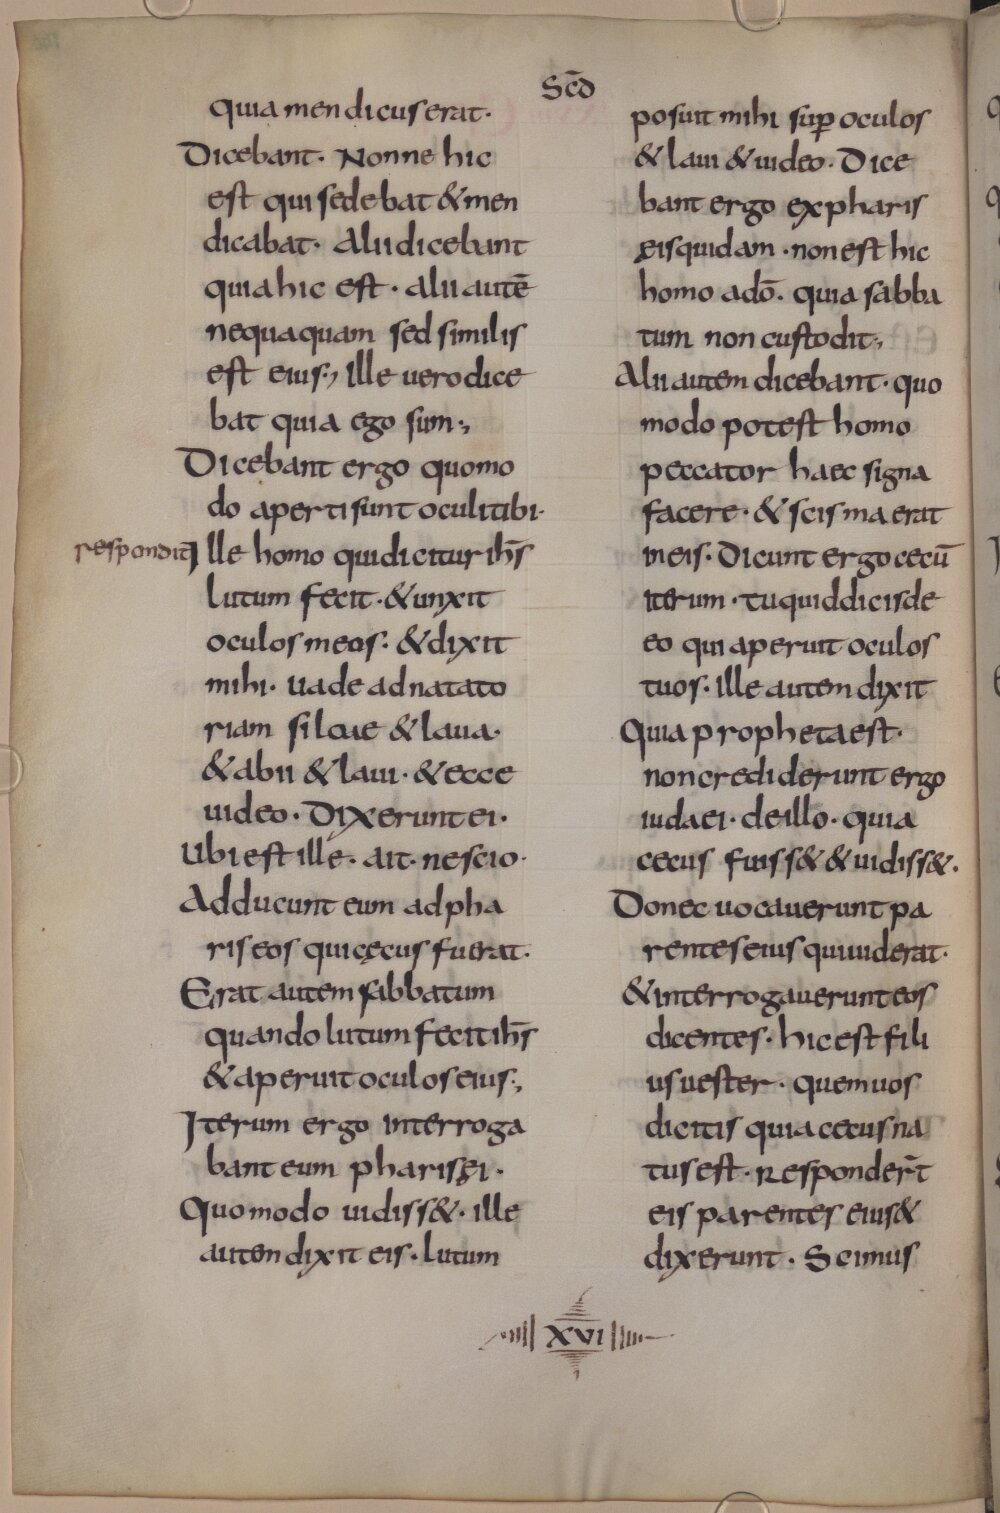 Scd̄
quia mendicus erat·
Dicebant· Nonne hic
est qui sedebat & men
dicabat· Alii dicebant
quia hic est· alii autē
nequaquam sed similis
est eius·, Ille uero dice
bat quia ego sum·,
Dicebant ergo quomo
do aperti sunt oculi tibi·
respondit Ille homo qui dicitur ihs̄
lutum fecit· & unxit
oculos meos· & dixit
mihi· uade ad natato
riam siloae & laua·
& abii & laui· & ecce
uideo· Dixerunt ei·
Ubi est ille· ait· nescio·
Adducunt eum ad pha
riseos qui cęcus fuerat·
Erat autem sabbatum
quando lutum fecit ihs̄
& aperuit oculos eius·,
Iterum ergo interroga
bant eum pharisęi·
Quomodo uidiss&· ille
autem dixit eis· lutum
posuit mihi sup̄ oculos
& laui & uideo· Dice
bant ergo ex pharis
ęis quidam· non est hic
homo a dō· quia sabba
tum non custodit·,
Alii autem dicebant· quo
modo potest homo
peccator haec signa
facere· & scisma erat
in eis· Dicunt ergo cecū
iterum· tu quid dicis de
eo qui aperuit oculos
tuos· ille autem dixit
Quia propheta est·
non crediderunt ergo
iudaei· de illo· quia
cecus fuiss& & uidiss&·
Donec uocauerunt pa
rentes eius qui uiderat·
& interrogauerunt eos
dicentes· hic est fili
us uester· quem uos
dicitis quia cecus na
tus est· Responder̄t
eis parentes eius &
dixerunt· Scimus
XVI